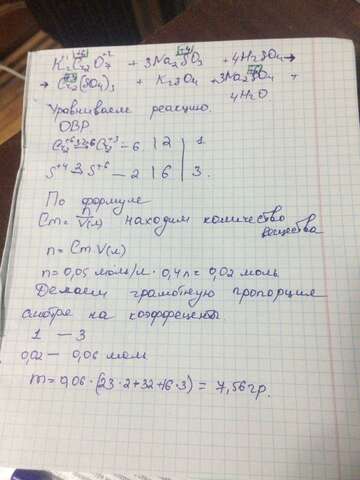 K₂Cr₂O₇ + 3Na₂SO₃ + 4H₂SO₄ →
→ Cr₂(SO₄)₃ + K₂SO₄ + 3Na₂SO₄ +
4H₂O
Уравниваем реакцию.
ОВР
— 6 | 2 | 1
S⁺⁴ → S⁺⁶ — 2 | 6 | 3.
По формуле
Cm = n/V(л) находим количество
вещества
n = Cm·V(л)
n = 0,05 моль/л · 0,4л = 0,02 моль
Делаем грамотную пропорцию
смотря на коэффеценты.
1 — 3
0,02 — 0,06 моль
m = 0,06·(23·2+32+16·3) = 7,56гр.